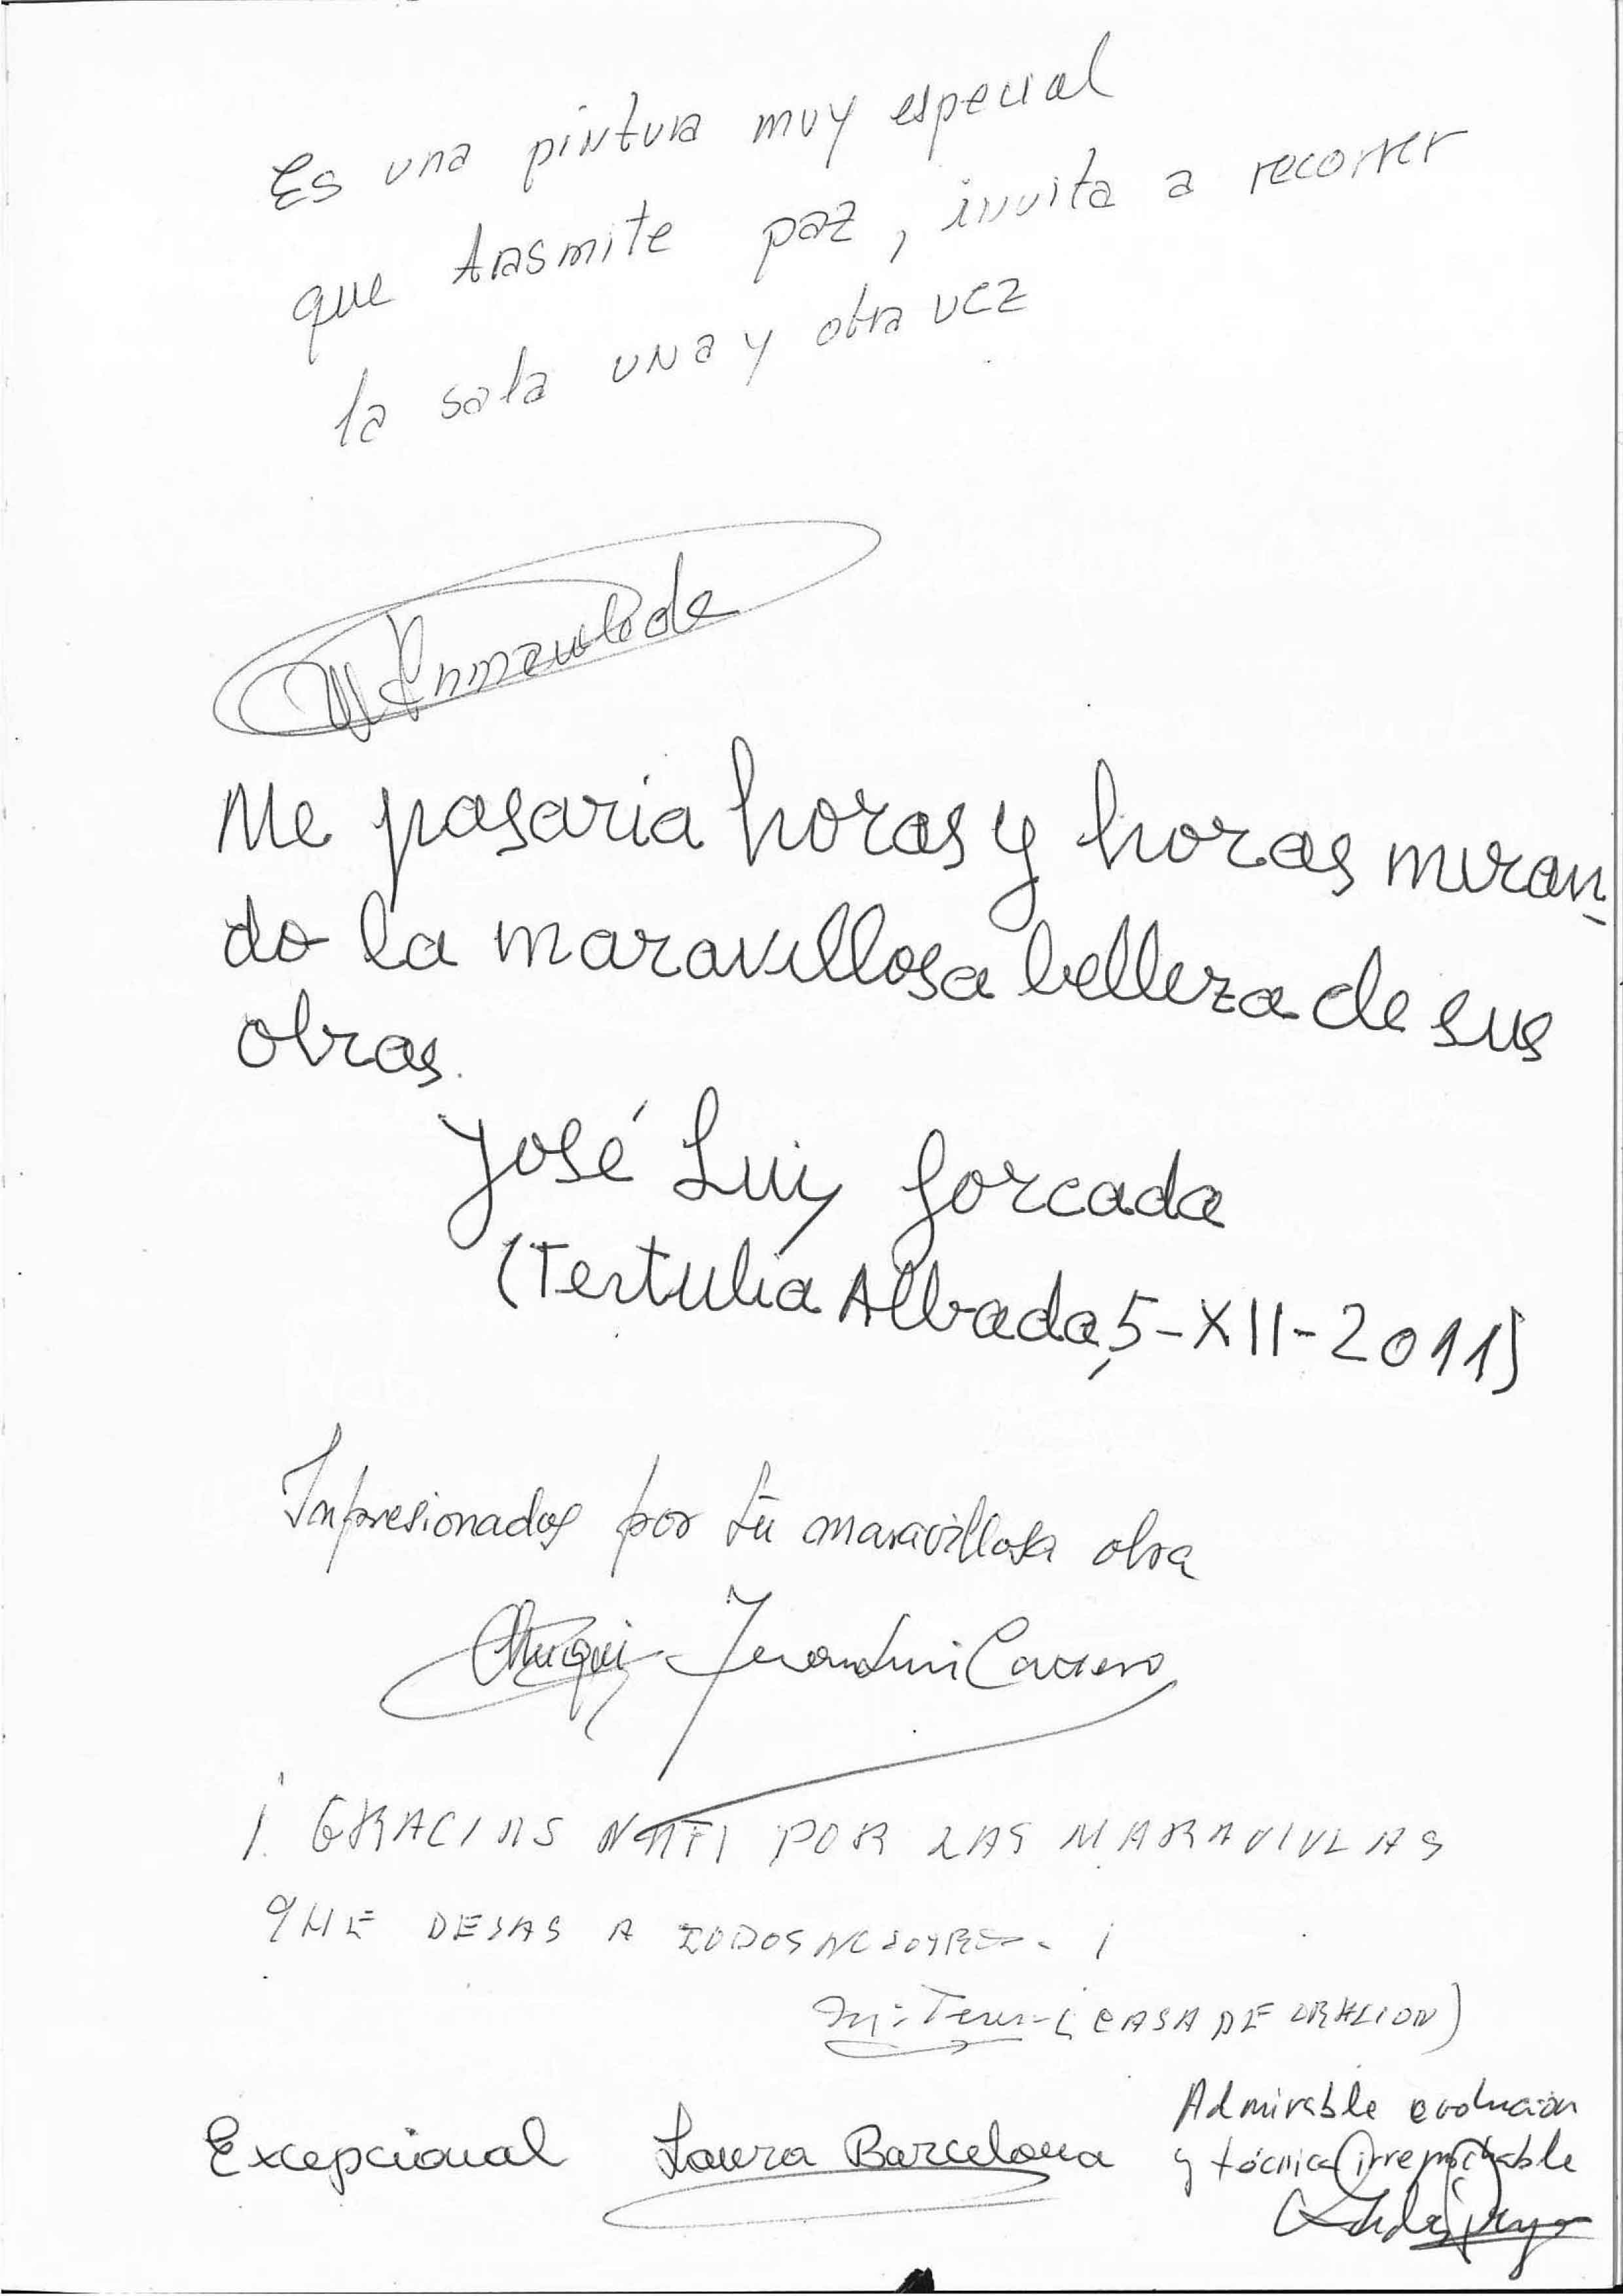 Es una pintura muy especial
que trasmite paz, invita a recorrer
la sala una y otra vez
Me pasaria horas y horas miran-
do la maravillosa belleza de sus
obras.
José Luis Forcada
(Tertulia Albada, 5-XII-2011)
Impresionados por tu maravillosa obra
Juan Luis Carrero
¡ GRACIAS NATI POR LAS MARAVILLAS
QUE DEJAS A TODOS
(CASA DE ORACION)
Excepcional Laura Barcelona
Admirable evolución
y técnica irreprochable